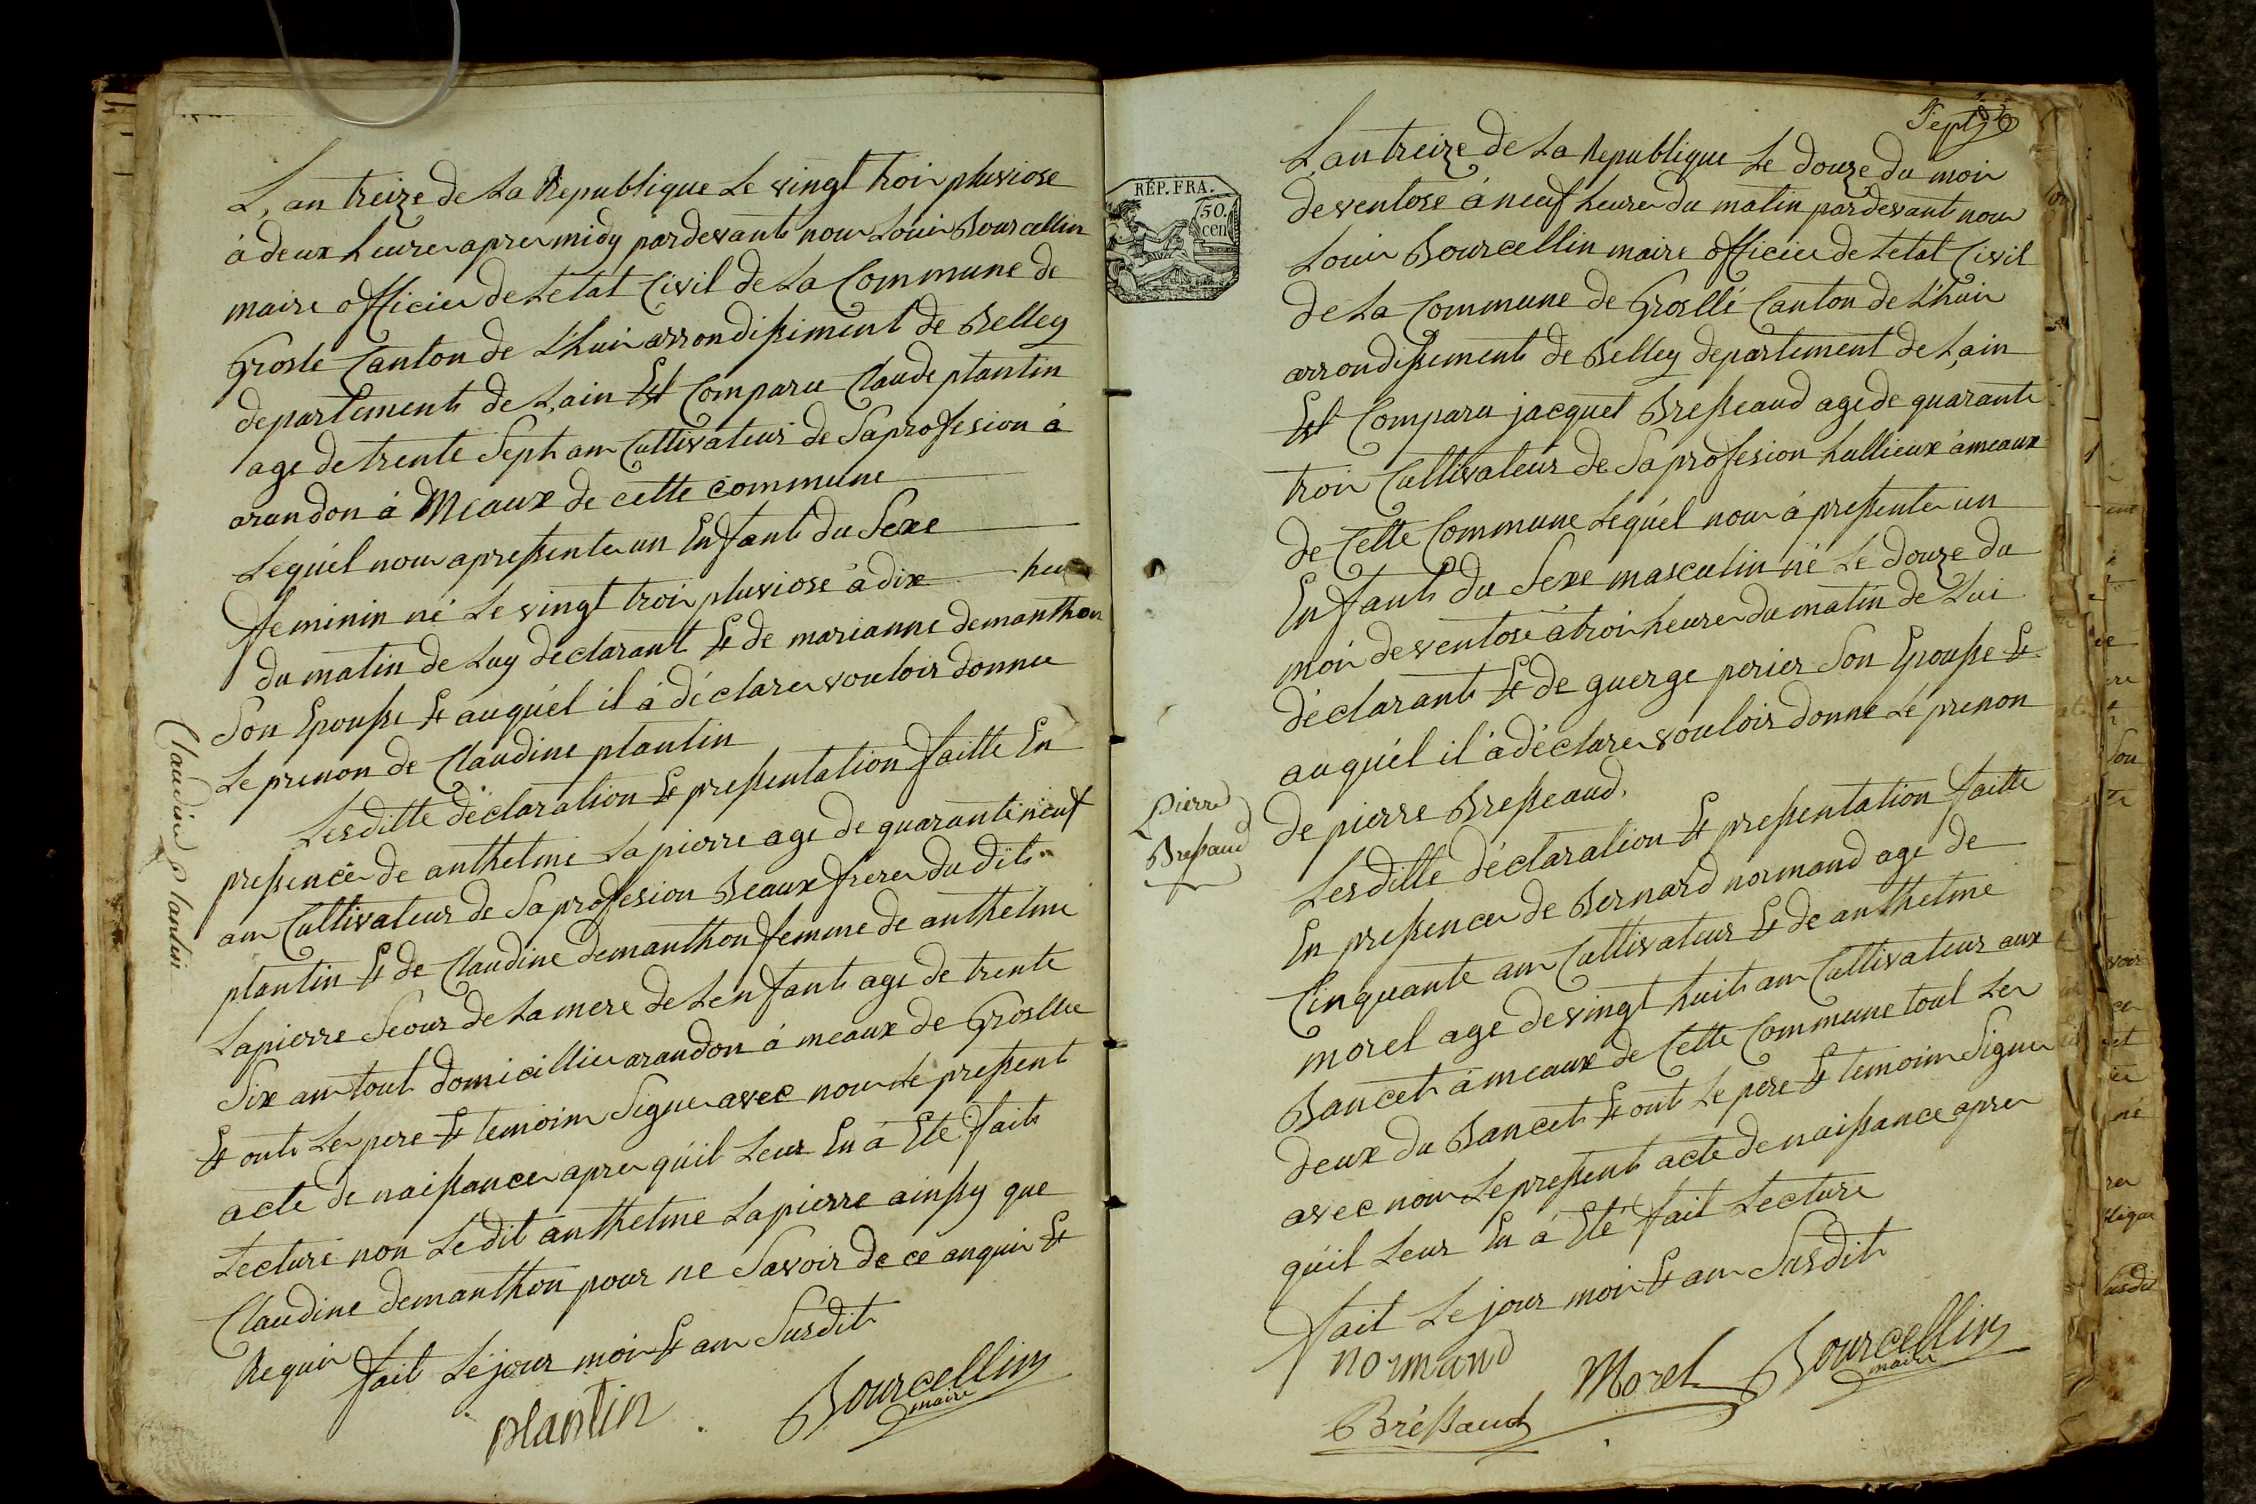 L,an treize de La Republique Le vingt troi pluviose
à deux heure apre midy pardevant nou Loui Bourcellin
maire officie de Letat Civil de La Commune de
Grosle Canton de L'hui arrondissiment de Belley
departement de L,ain Est Comparu Claude plantin
age de trente Sept an Cultivateur de Sa profesion à
arandon à Meaux de cette commune
Lequél nou a pressente un Enfant du Sexe
feminin né Le vingt troi pluviose à dix heu
du matin de Luy déclarant Et de marianne demanthon
Son Epousse Et auquél il á déclare vouloir donne
Le prenon de Claudine plantin
Claudine Plantin
Lesditte déclaration Et pressentation faitte En
pressence de anthelme Lapierre age de quarante neuf
an Cultivateur de Sa profesion Beaux frere du dit
plantin Et de Claudine demanthon femme de anthelme
Lapierre Seour de La mere de Lenfant age de trente
Six an tout domicillie arandon à meaux de Groslle
Et ont Le pere Et temoin Signe avec nou Le pressent
acte de naissance apre qúil Leur En á Eté fait
Lecture non Ledit anthelme Lapierre ainssy que
Claudine demanthon pour ne Savoir de ce anqui Et
Requi fait Lé jour moi Et an Susdit
plantin Bourcellin
maire
Sept
RÉP. FRA.
50.
cen
L,an treize de La Republique Le douze du moi
de ventose á neuf heure du matin pardevant nou
Loui Bourcellin maire officie de Letat Civil
de La Commune de Grosllé Canton de L'hui
arrondissement de Belley departement de L,ain
Est Comparu jacquet Bresseaud age de quarante
troi Cultivateur de Sa profesion hullieux à meaux
de Cette Commune Lequél nou á pressente un
Enfant du Sexe masculin né Le douze du
moi de ventose à troi heure du matin de Lui
déclarant Et de guerge perier Son Epousse Et
auquél il á déclare vouloir donne Lé prenon
de pierre Bresseaud.
Pierre
Bressaud
Lesditte déclaration Et pressentation faitte
En pressence de Bernard normand age de
Cinquante an Cultivateur Et de anthelme
morel age de vingt huit an Cultivateur aux
Bancet à meaux de Cette Commune tout Le
deux du Bancet Et ont Le pere Et temoin Signe
avec nou Le pressent acte de naissance apre
qúil Leur En á Eté fait Lecture
fait Le jour moi Et an Susdit
normand Morel Bourcellin
maire
Bréssaud